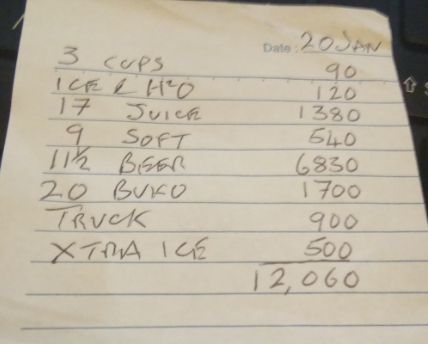 Date: 20 JAN
3 CUPS 90
ICE & H2O 120
17 JUICE 1380
9 SOFT 540
11½ BEER 6830
20 BUKO 1700
TRUCK 900
XTRA ICE 500
12,060